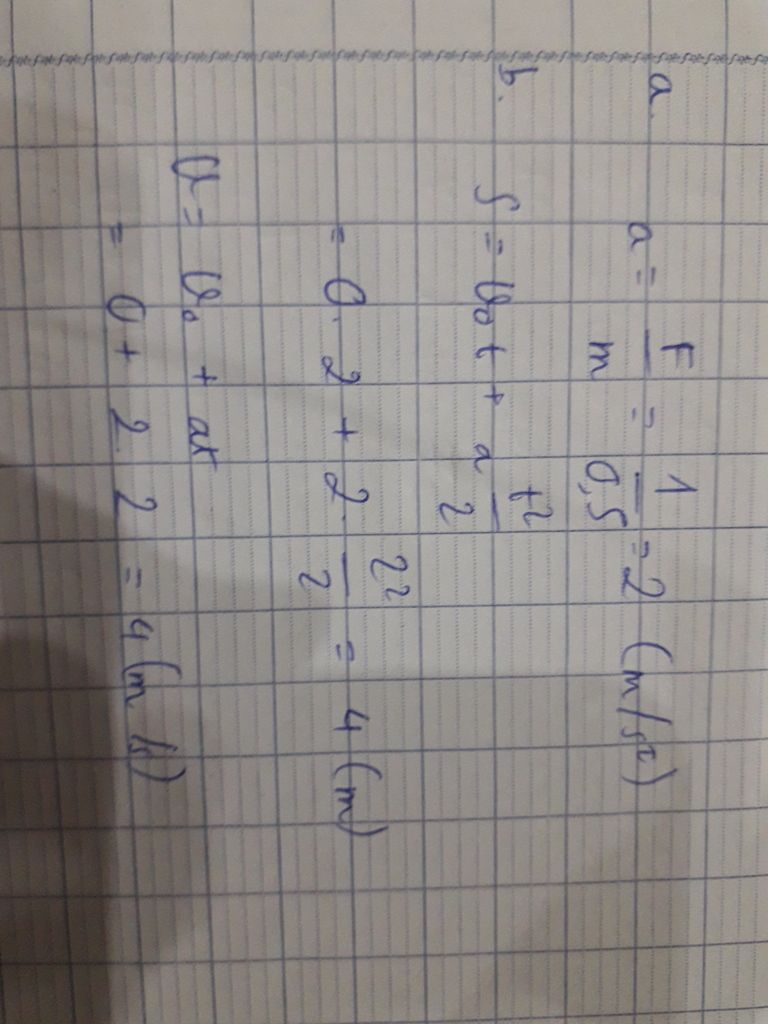 a. a = F/m = 1/0,5 = 2 (m/s²)
b. S = v₀t + a t²/2
= 0.2 + 2. 2²/2 = 4 (m)
v = v₀ + at
= 0 + 2.2 = 4 (m/s)